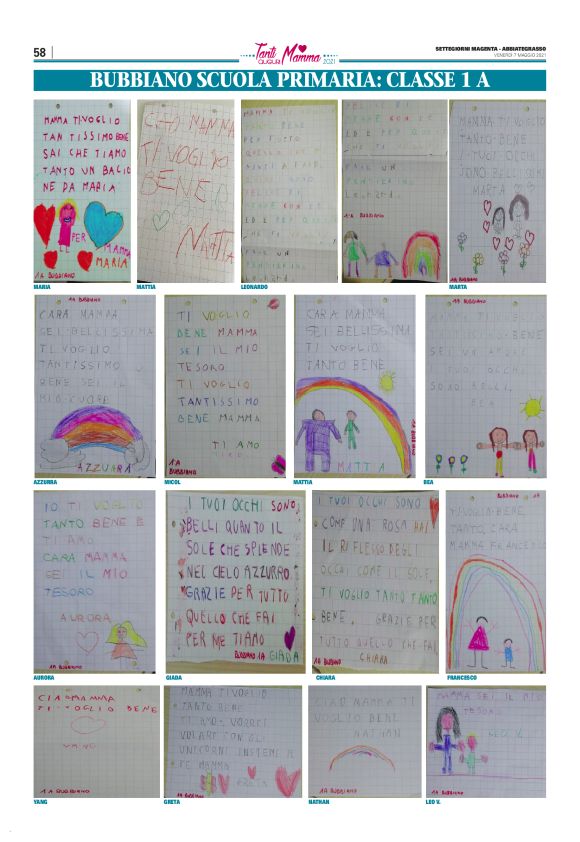 58
Tanti
AUGURI
Mamma
2021
SETTEGIORNI MAGENTA - ABBIATEGRASSO
VENERDÌ 7 MAGGIO 2021
BUBBIANO SCUOLA PRIMARIA: CLASSE 1 A
MAMMA TI VOGLIO
TAN TISSIMO BENE
SAI CHE TI AMO
TANTO UN BACIO
NE DA MARIA
PER
MAMMA
MARIA
1A BUBBIANO
MARIA
CIAO MAMMA
TI VOGLIO
BENE
MATTIA
MATTIA
MAMMA TI VOGLIO
TANTO BENE
PER TUTTO
LEONARDO
1A BUBBIANO
MAMMA TI VOGLIO
TANTO BENE
I TUOI OCCHI
SONO BELLISSIMI
MARTA
1A BUBBIANO
MARTA
1A BUBBIANO
CARA MAMMA
SEI BELLISSIMA
TI VOGLIO
TANTISSIMO
BENE SEI IL
MIO CUORE
AZZURRA
AZZURRA
TI VOGLIO
BENE MAMMA
SEI IL MIO
TESORO
TI VOGLIO
TANTISSIMO
BENE MAMMA
TI AMO
1A
BUBBIANO
MICOL
CARA MAMMA
SEI BELLISSIMA
TI VOGLIO
TANTO BENE
MATTIA
MATTIA
1A BUBBIANO
BENE
SEI UN
TUOI OCCHI
SONO BELLI
BEA
BEA
IO TI VOGLIO
TANTO BENE E
TI AMO
CARA MAMMA
SEI IL MIO
TESORO
AURORA
1A BUBBIANO
AURORA
I TUOI OCCHI SONO
BELLI QUANTO IL
SOLE CHE SPLENDE
NEL CIELO AZZURRO
GRAZIE PER TUTTO
QUELLO CHE FAI
PER ME TI AMO
BUBBIANO 1A GIADA
GIADA
I TUOI OCCHI SONO
COME UNA ROSA HAI
IL RIFLESSO DEGLI
OCCHI COME IL SOLE
TI VOGLIO TANTO TANTO
BENE GRAZIE PER
TUTTO QUELLO CHE FAI
1A BUBBIANO CHIARA
CHIARA
BUBBIANO 1A
TI VOGLIO BENE
TANTO CARA
MAMMA FRANCESCO
FRANCESCO
CIAO MAMMA
TI VOGLIO BENE
YANG
1A BUBBIANO
YANG
MAMMA TI VOGLIO
TANTO BENE
TI AMO VORREI
VOLARE CON GLI
UNICORNI INSIEME A
TE MAMMA
GRETA
1A BUBBIANO
GRETA
CIAO MAMMA TI
VOGLIO BENE
NATHAN
1A BUBBIANO
NATHAN
MAMMA SEI IL MIO
TESORO
LEO V.
1A BUBBIANO
LEO V.